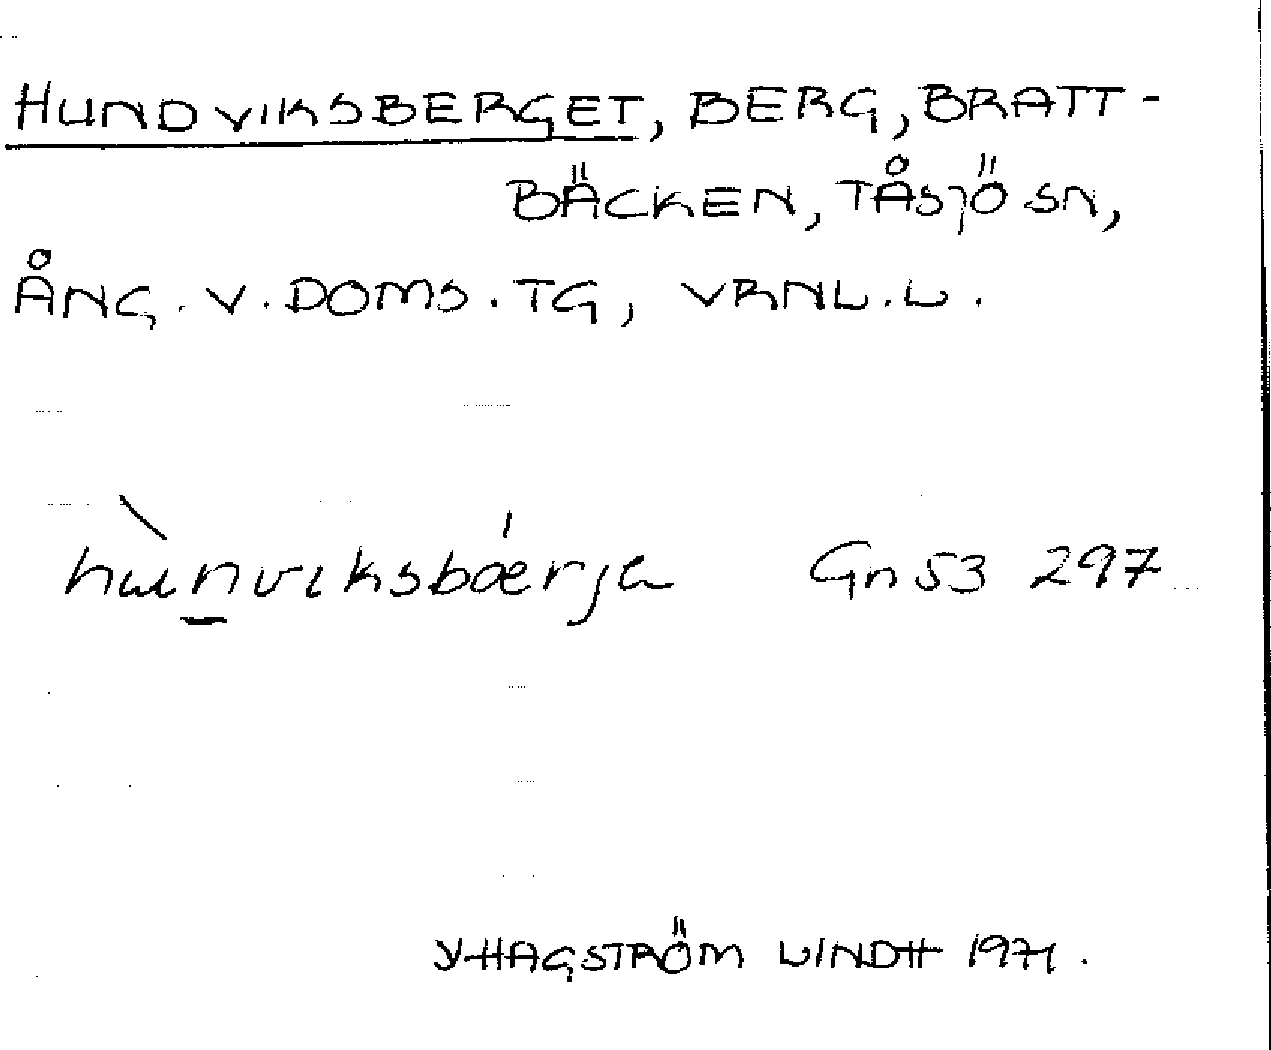 HUNDVIKSBERGET, BERG, BRATT-
BÄCKEN, TÅSJÖ SN,
ÅNG. V. DOMS. TG, VRNL. L.
hùn̲viksbǽrja Gn 53 297
Y HAGSTRÖM LINDH 1971.